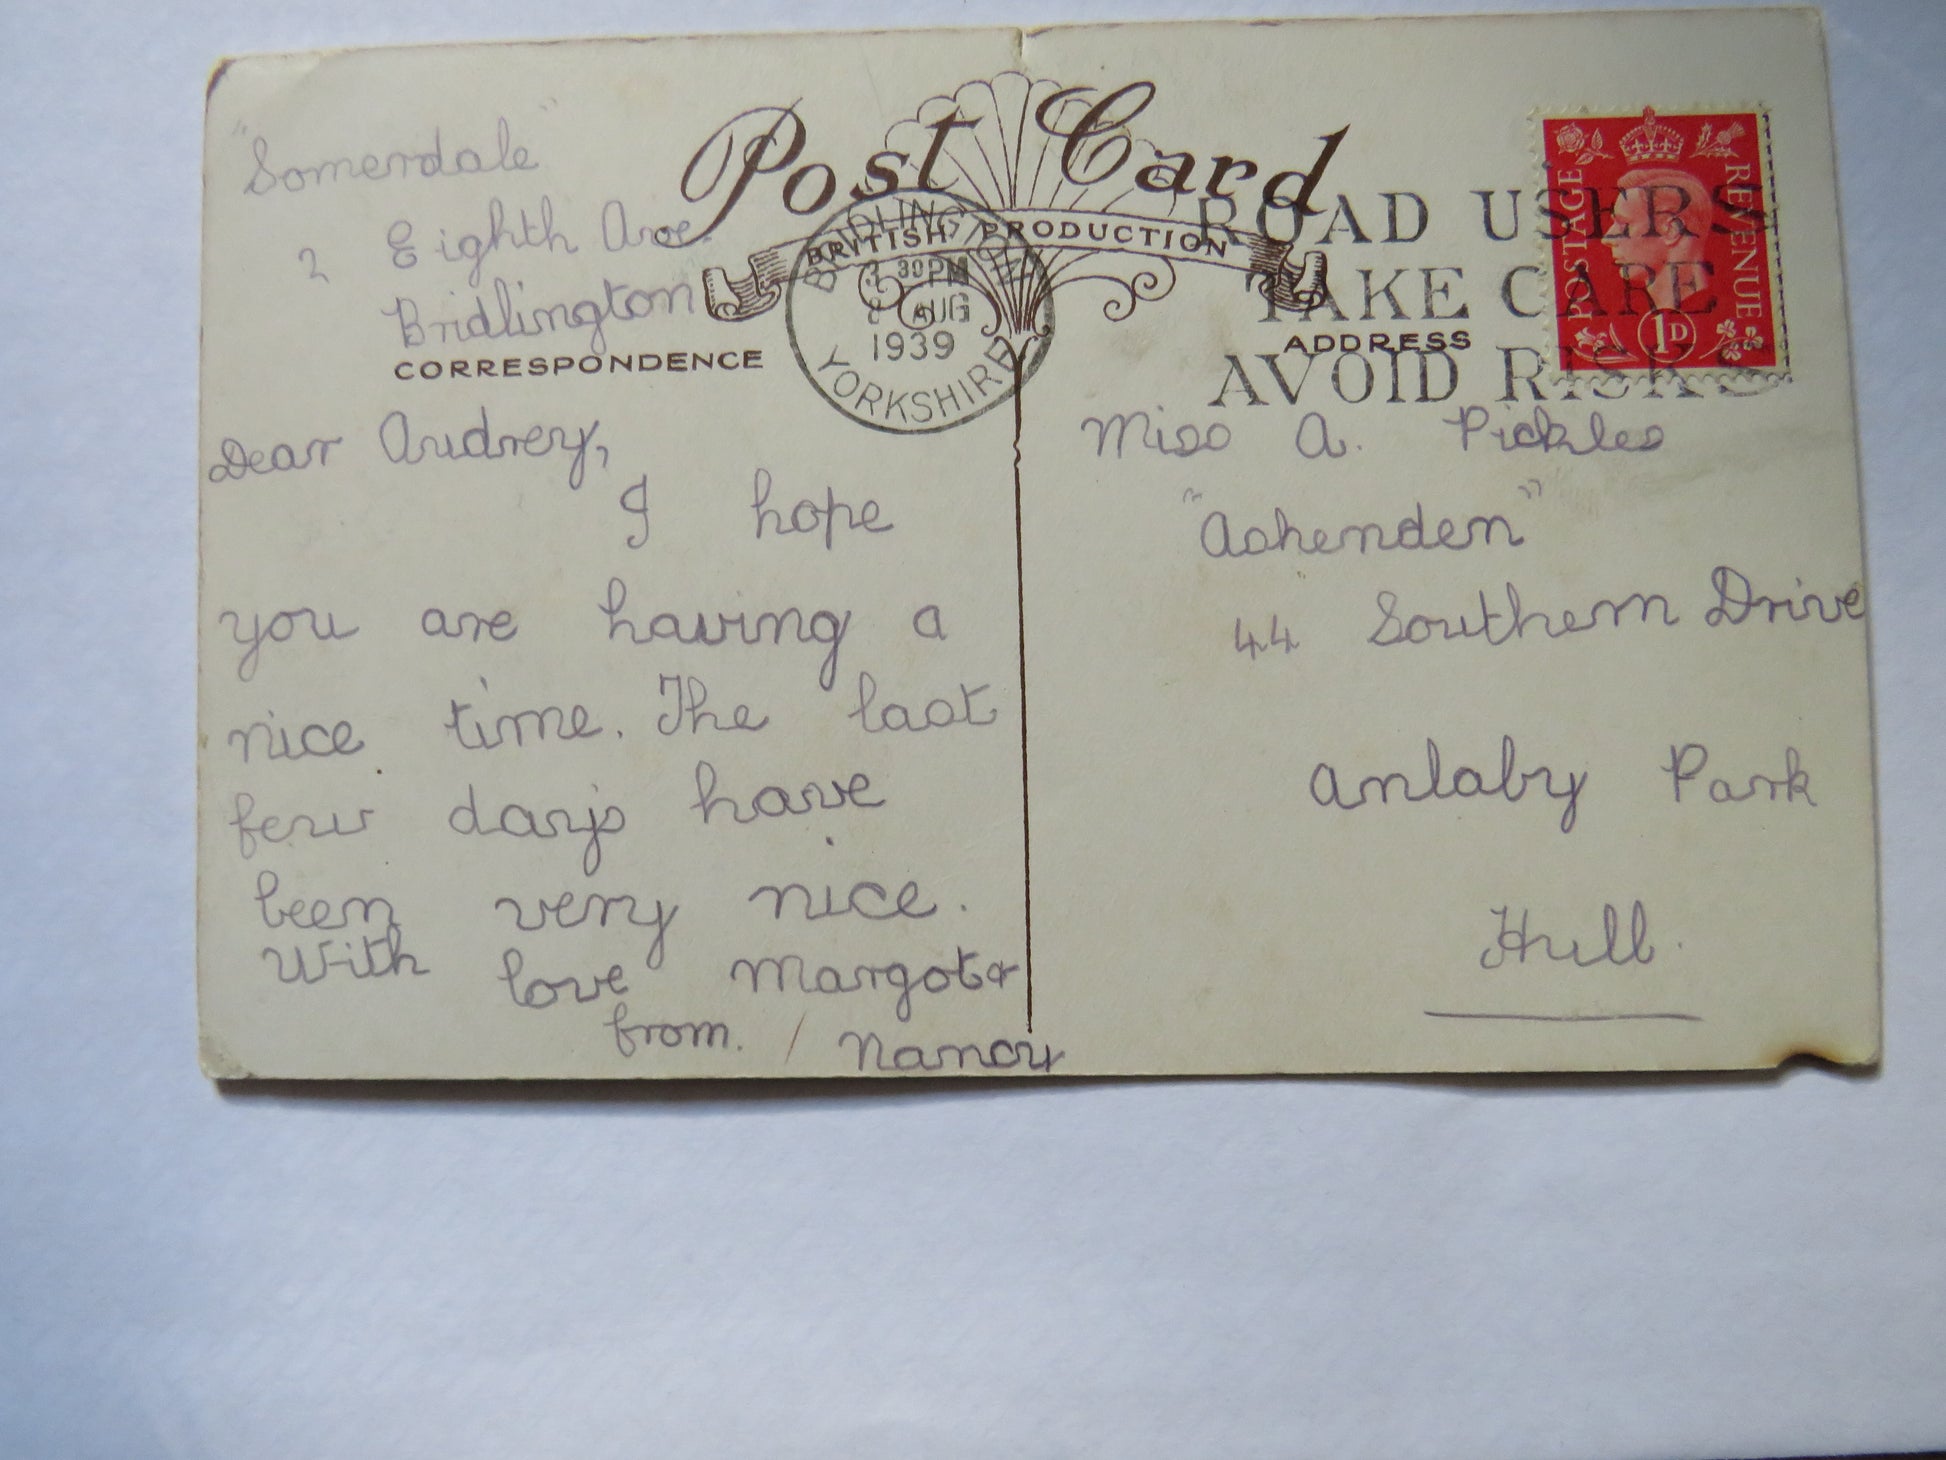 Post Card
BRITISH PRODUCTION
"Somerdale"
2 Eighth Ave.
Bridlington
CORRESPONDENCE
BRIDLINGTON
30 PM
8 AUG
1939
YORKSHIRE
ROAD USERS
TAKE CARE
AVOID RISKS
POSTAGE
REVENUE
1D
ADDRESS
Dear Audrey,
I hope
you are having a
nice time. The last
few days have
been very nice.
With love Margot &
from. Nancy
Miss A. Pickles
"Ashenden"
44 Southern Drive
Anlaby Park
Hull.